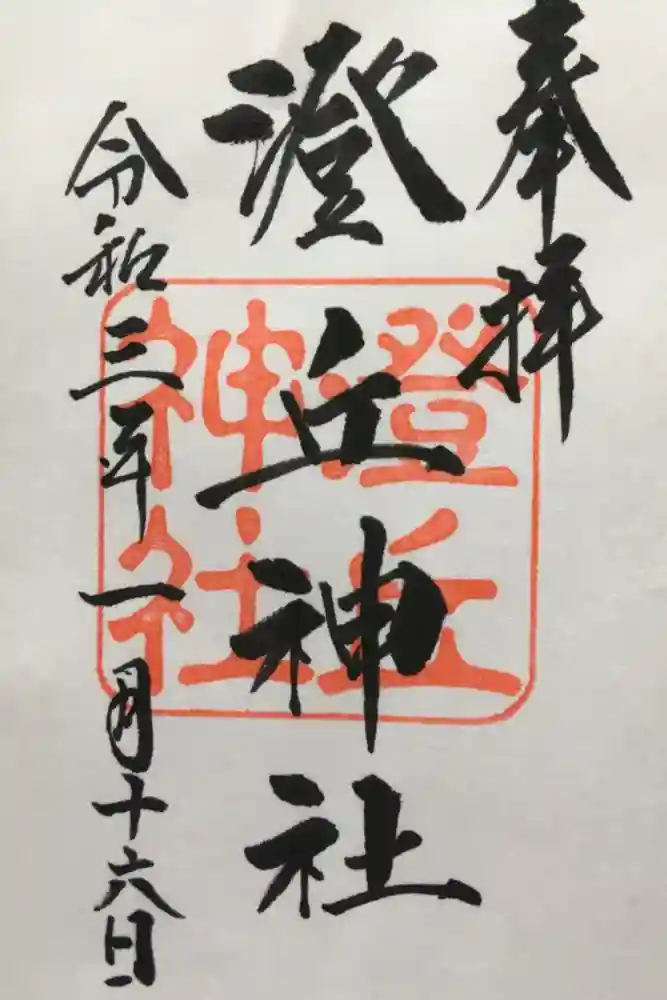 奉拝
澄丘神社
令和三年一月十六日
澄丘
神社